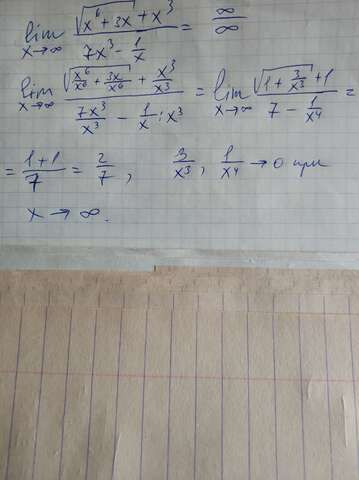 lim x→∞ (√(x⁶ + 3x) + x³) / (7x³ − 1/x) = ∞/∞
lim x→∞ (√(x⁶/x⁶ + 3x/x⁶) + x³/x³) / (7x³/x³ − 1/x : x³) = lim x→∞ (√(1 + 3/x⁵) + 1) / (7 − 1/x⁴) =
= (1+1)/7 = 2/7, 3/x³, 1/x⁴ → 0 при
x → ∞.